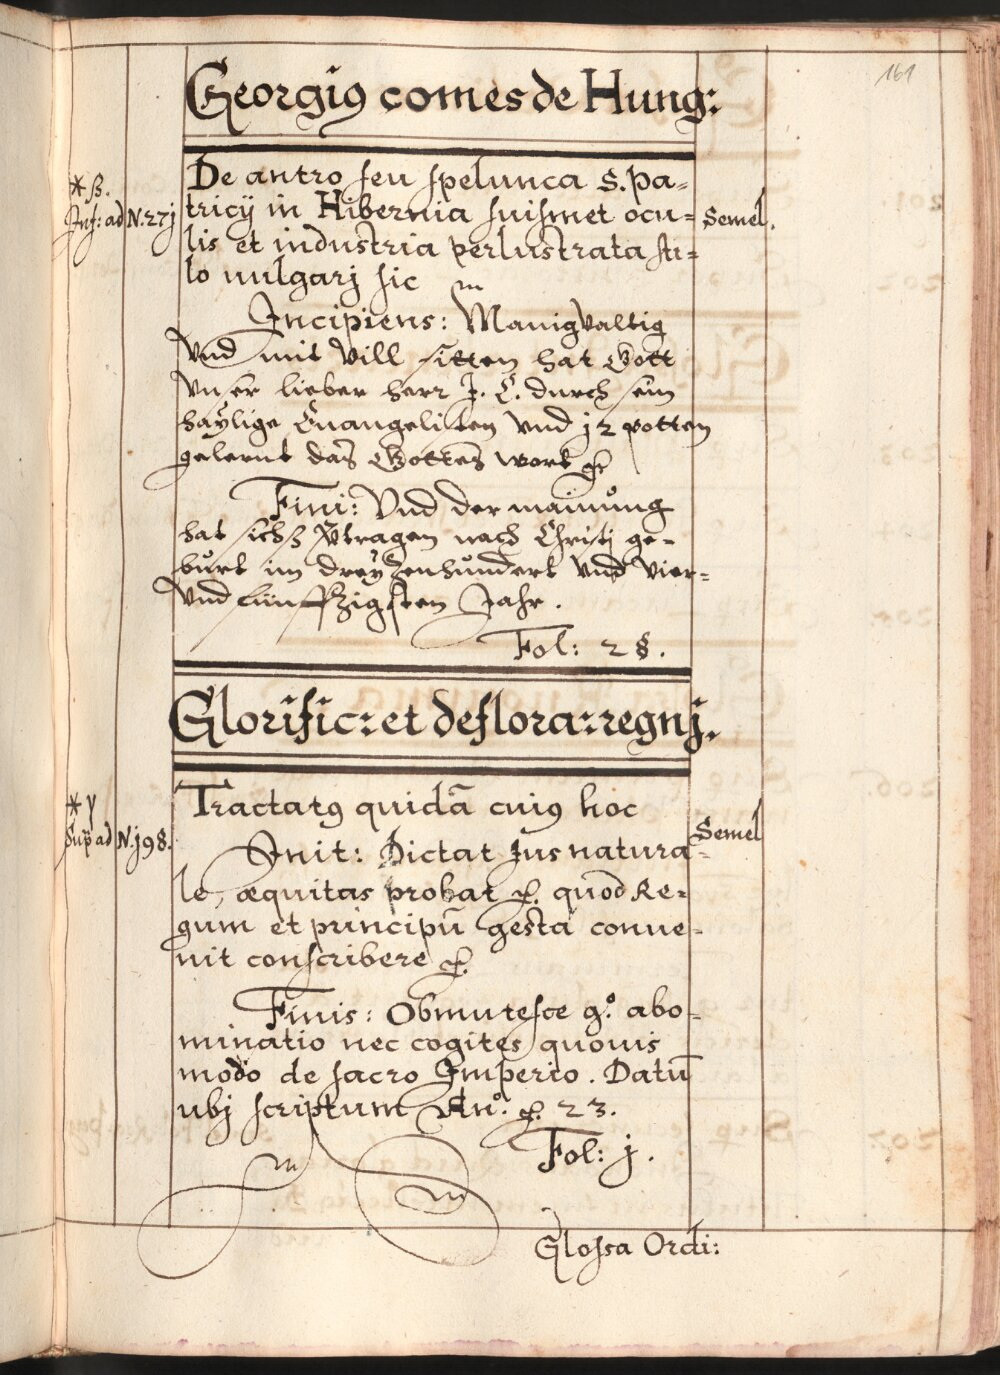 161
Georgi9 comes de Hung:
* ß.
Inf: ad N. 27j
De antro seu spelunca S. Pa=
tricij in Hibernia suismet ocu=
lis et industria perlustrata sti=
lo uulgarj sic
Semel.
Incipiens: Manigvaltig
Vnd mit vill sitten hat Gott
Vnser lieber herr J. C. durch sein
haÿlige Euangelisten Vnd j2 potten
gelernt das Gottes wort
Fini: Vnd der mainŭng
hat sichß Vtragen nach Christj ge=
bŭrt im dreyZenhŭndert Vnd Vier=
Vnd fŭnffzigsten Jahr.
Fol: 28.
Glorific: et deflora: regnj.
* γ
Sup ad N. j98.
Tractat9 quidā cui9 hoc
Semel
Init: Dictat Jus natura=
le, æquitas probat quod Re=
gum et principū gesta conue=
nit conscribere
Finis: Obmutesce g.o abo=
minatio nec cogites quouis
modo de sacro Imperio. Datū
ubj scriptum Ano. 23.
Fol: j.
Glossa Ordi: